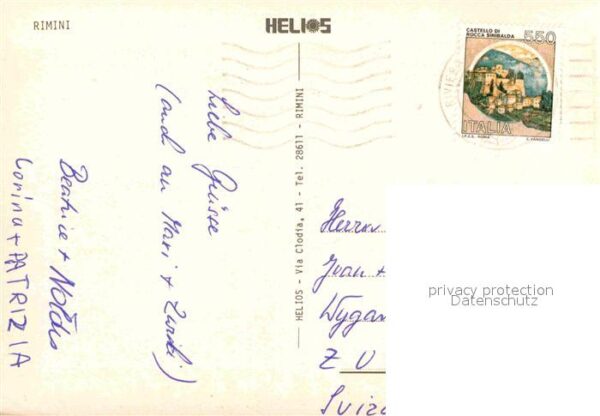 RIMINI
HELIOS
CASTELLO DI
ROCCA SINIBALDA
550
ITALIA
I.P.Z.S. ROMA
E. VANGELLI
Liebe Grüsse
(auch an Mari +
Beatrice +
Corina + PATRIZIA
HELIOS - Via Clodia, 41 - Tel. 28611 - RIMINI
Herrn
Jean +
Wygan
Z U
Svizz
privacy protection
Datenschutz